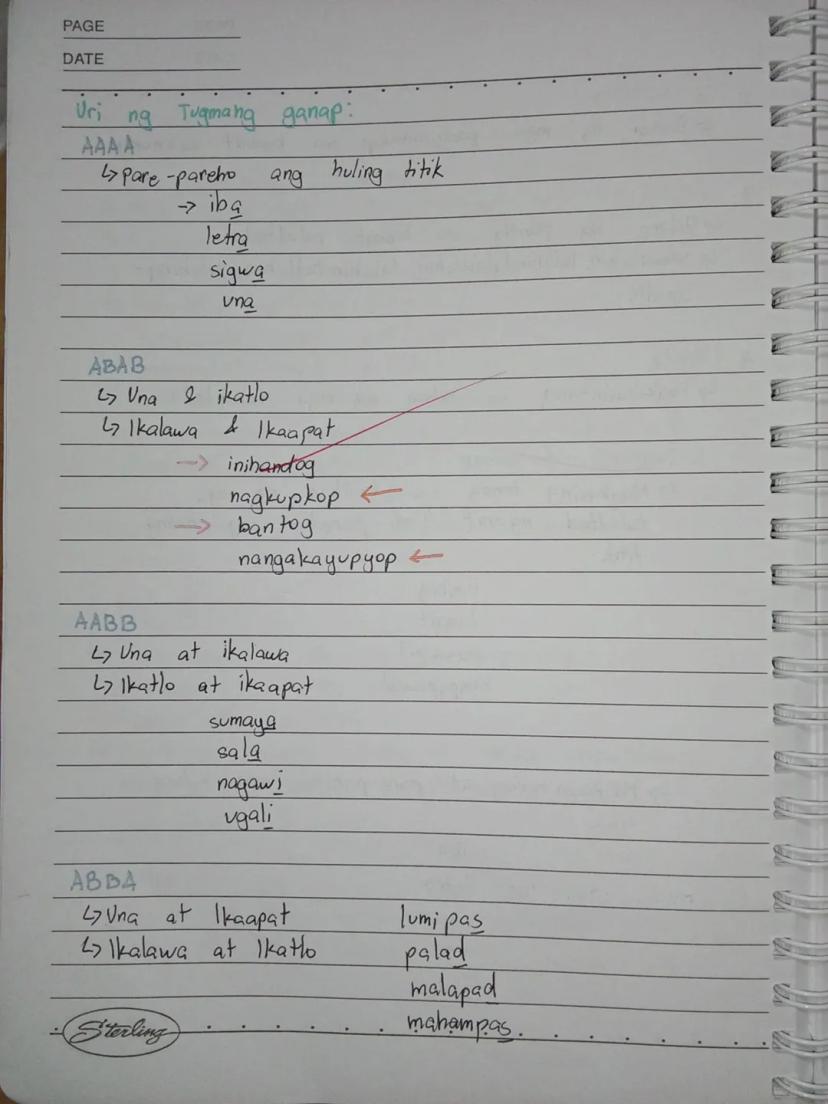 PAGE
DATE
Uri ng Tugmang ganap:
AAAA
↳ pare-pareho ang huling titik
→ iba
letra
sigwa
una
ABAB
↳ Una & ikatlo
↳ Ikalawa & Ikaapat
→ inihandog
nagkupkop ←
→ bantog
nangakayupyop ←
AABB
↳ Una at ikalawa
↳ Ikatlo at ikaapat
sumaya
sala
nagawi
ugali
ABBA
↳ Una at Ikaapat lumipas
↳ Ikalawa at Ikatlo palad
malapad
mahampas
Sterling